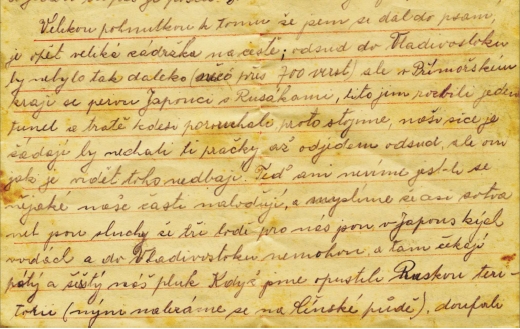 Velikou pohnutkou k tomu že jsem se dal do psaní,
je opět veliká zadržka na cestě; odsud do Vladivostoku
by nebylo tak daleko (něco přes 700 verst) ale v Přímořském
kraji se perou Japonci s Rusákami, tito jim rozbili jeden
tunel a tratě kdesi porouchali, proto stojíme, naši sice je
žádají by nechali ti pračky až odjedem odsud, ale oni
jak je vidět toho nedbají. Teď ani nevíme jest-li se
nějaké naše časti naloďují, a myslíme že asi sotva
neb jsou sluchy že tři lodě pro nás jsou v Japonských
vodách a do Vladivostoku nemohou, a tam čekají
pátý a šestý náš pluk. Když jsme opustili Ruskou teri-
torii (nyní nalezáme se na čínské půdě), doufali